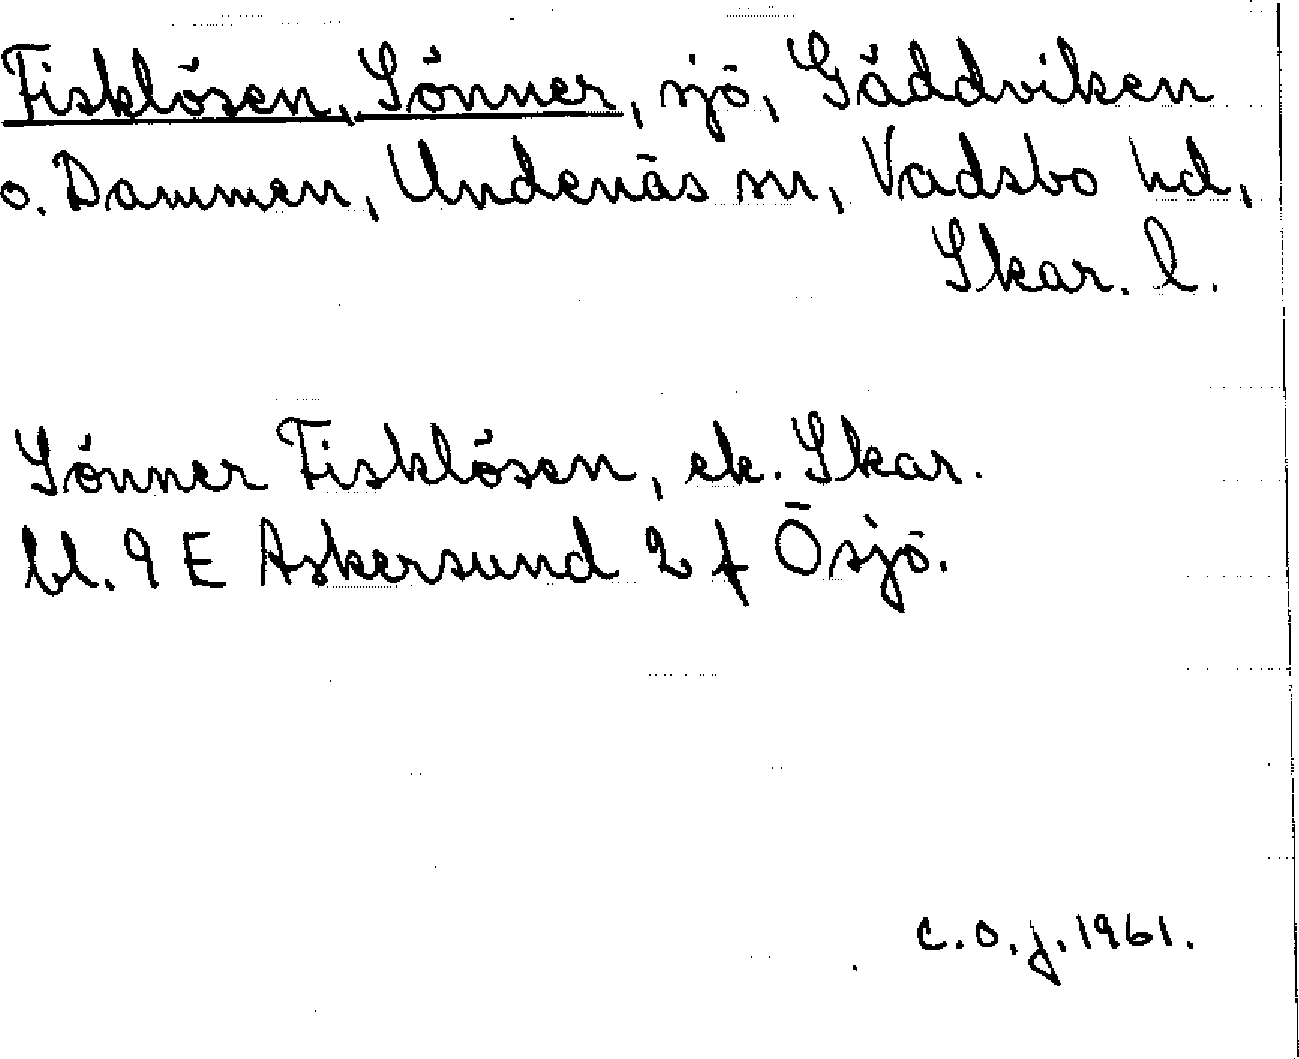 Fisklösen, Sönner, sjö, Gäddviken
o. Dammen, Undenäs sn, Vadsbo hd,
Skar. l.
Sönner Fisklösen, ek. Skar.
bl. 9 E Askersund 2 f Ösjö.
C.O.J. 1961.